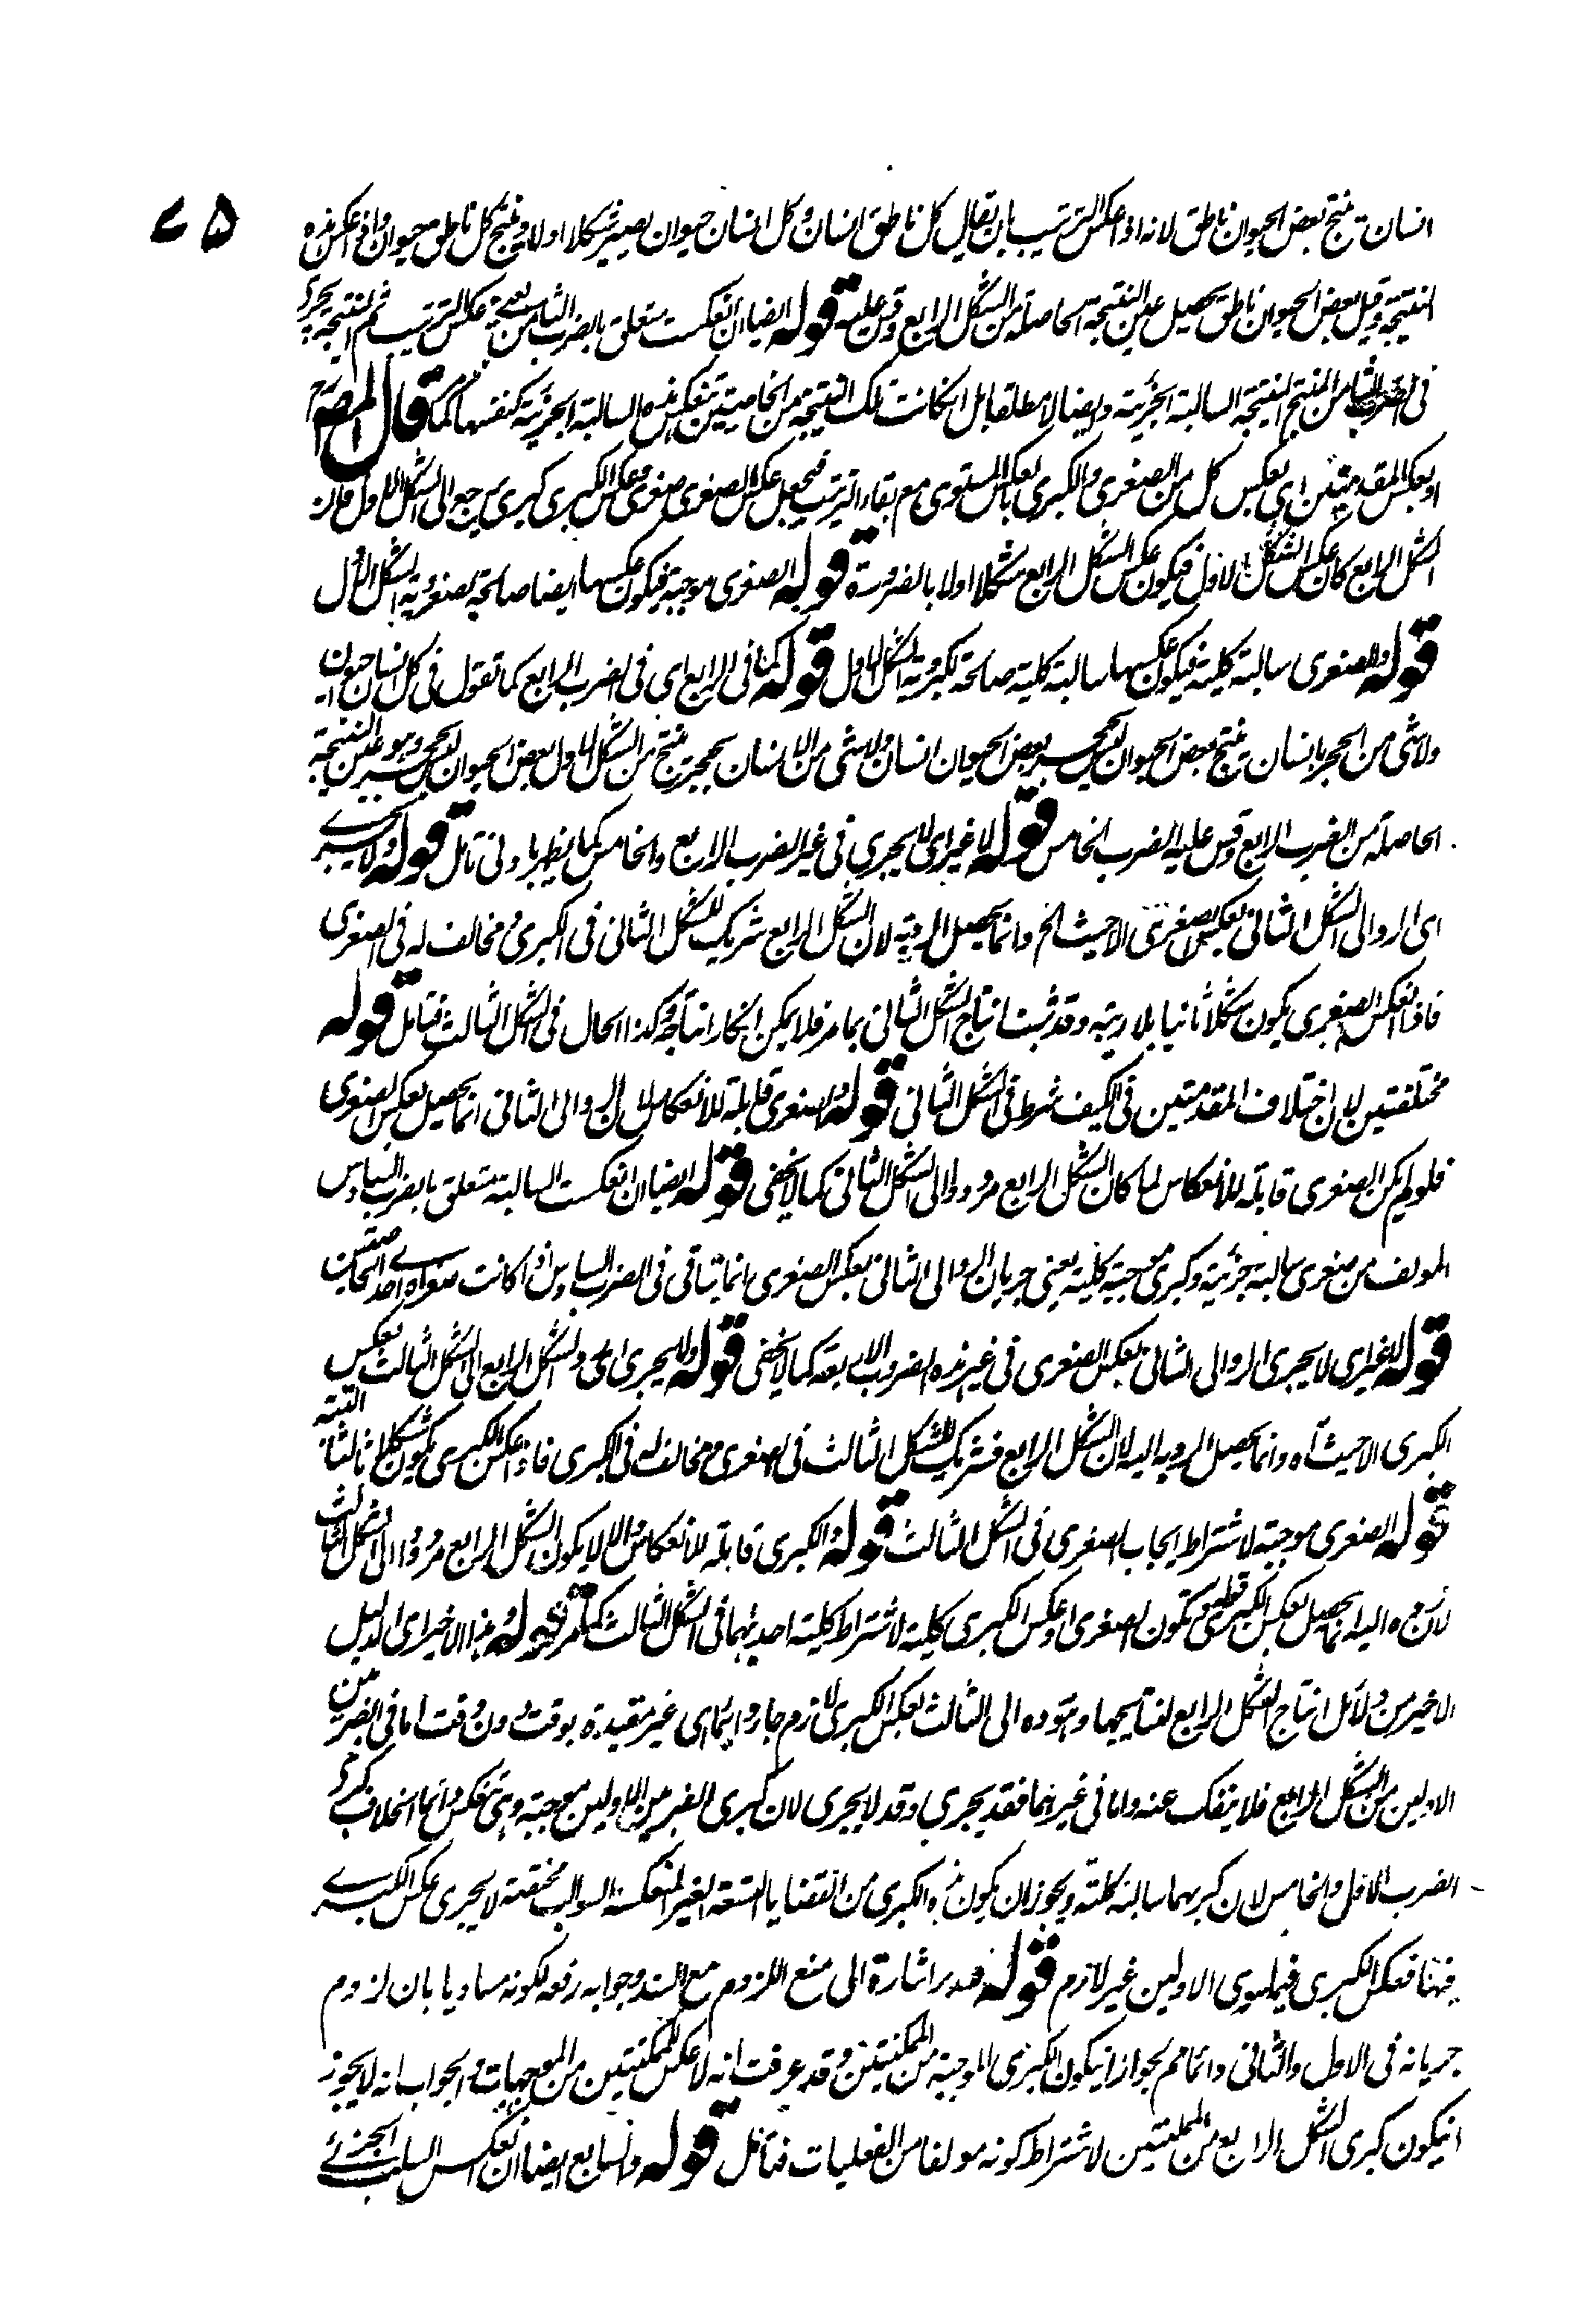 ٧٥
انسان ينتج بعض الحيوان ناطق لانه اذا عكس الترتيب بان يقال كل ناطق انسان وكل انسان حيوان يصير شكلا اولا وينتج كل ناطق حيوان واذا عكس هذه
النتيجة وقيل بعض الحيوان ناطق يحصل عين النتيجة الحاصلة من الشكل الرابع وقس عليه قوله ايضا ان انعكست متعلق بالضرب الثامن يعنى عكس الترتيب ثم النتيجة يجرى
فى الضرب الثامن المنتج النتيجة السالبة الجزئية وايضا لا مطلقا بل ان كانت تلك النتيجة من الخاصيتين تنعكس هذه السالبة الجزئية كنفسها كما قال المص رح
او بعكس المقدمتين اى بعكس كل من الصغرى والكبرى بالعكس المستوى مع بقاء الترتيب فيجعل عكس الصغرى صغرى وعكس الكبرى كبرى يرجع الى الشكل الاول فان
الشكل الرابع كان عكس الشكل الاول فيكون عكس الشكل الرابع شكلا اولا بالضرورة قوله الصغرى موجبة فيكون عكسها ايضا صالحة لصغروية الشكل الاول
قوله والصغرى سالبة كلية فيكون عكسها سالبة كلية صالحة لكبروية الشكل الاول قوله كما فى الرابع اى فى الضرب الرابع كما تقول فى كل انسان حيوان
ولا شئ من الحجر بانسان ينتج بعض الحيوان ليس بحجر بعض الحيوان انسان ولا شئ من الانسان بحجر ينتج من الشكل الاول بعض الحيوان ليس بحجر وهو عين النتيجة
الحاصلة من الضرب الرابع وقس عليه الضرب الخامس قوله لا غير اى لا يجرى فى غير الضرب الرابع والخامس كما يظهر بادنى تامل قوله ولا يجرى
اى الرد الى الشكل الثانى بعكس الصغرى الا حيث الخ وانما يحصل الرد به لان الشكل الرابع شريك للشكل الثانى فى الكبرى ومخالف له فى الصغرى
فاذا انعكس الصغرى يكون شكلا ثانيا بلا ريبة وقد ثبت انتاج الشكل الثانى بما مر فلا يمكن انكار انتاجه وكذا الحال فى الشكل الثالث فتامل قوله
مختلفتين لان اختلاف المقدمتين فى الكيف شرط فى الشكل الثانى قوله والصغرى قابلة للانعكاس لان الرد الى الثانى انما يحصل بعكس الصغرى
فلو لم يكن الصغرى قابلة للانعكاس لما كان الشكل الرابع مردودا الى الشكل الثانى كما لا يخفى قوله ايضا ان انعكست السالبة متعلق بالضرب السادس
المولف من صغرى سالبة جزئية وكبرى موجبة كلية يعنى جريان الرد الى الثانى بعكس الصغرى انما يتاتى فى الضرب السادس اذا كانت صغراه احدى الخاصتين
قوله لا غير اى لا يجرى الرد الى الثانى بعكس الصغرى فى غير هذه الضروب الاربعة كما لا يخفى قوله ولا يجرى اى رد الشكل الرابع الى الشكل الثالث بعكس
الكبرى الا حيث آه وانما يحصل الرد به اليه لان الشكل الرابع شريك للشكل الثالث فى الصغرى ومخالف له فى الكبرى فاذا عكس الكبرى يكون شكلا ثالثا البتة
قوله الصغرى موجبة لاشتراط ايجاب الصغرى فى الشكل الثالث قوله والكبرى قابلة للانعكاس والا لا يكون الشكل الرابع مردودا الى الشكل الثالث
لان رده اليه انما يحصل بعكس الكبرى قوله تكون الصغرى او عكس الكبرى كلية لاشتراط كلية احديهما فى الشكل الثالث كما مر قوله وهذا الاخير اى الدليل
الاخير من دلائل انتاج الشكل الرابع لنتايجها وهو رده الى الثالث بعكس الكبرى لازم جار دائما اى غير مقيدة بوقت دون وقت اما فى الضربين
الاولين من الشكل الرابع فلا ينفك عنه واما فى غيرهما فقد يجرى وقد لا يجرى لان كبرى الضربين الاولين موجبة وهى تنعكس دائما بخلاف كبرى
الضرب الاول والخامس لان كبريهما سالبة كلية ويجوز ان يكون هذه الكبرى من القضايا التسعة الغير المنعكسة السوالب فحينئذ لا يجرى عكس الكبرى
فيها فعكس الكبرى فيما سوى الاولين غير لازم قوله فتدبر اشارة الى منع اللزوم مع السند وجوابه رفعه لكونه مساويا بان لزوم
جريانه فى الاول والثانى دائما ثم يجواز ان يكون الكبرى الموجبة من الممكنتين وقد عرفت انه لا عكس للممكنتين من الموجهات والجواب انه لا يجوز
ان يكون كبرى الشكل الرابع من الممكنتين لاشتراط كونه مولفا من الفعليات فتامل قوله والسابع ايضا ان انعكس السلب الجزئى